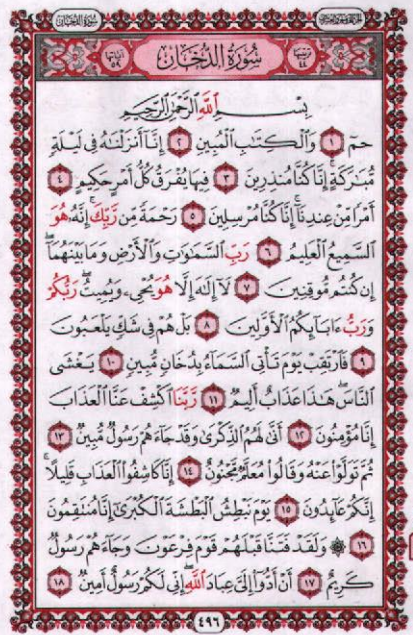 سُورَةُ الدُّخَانِ
الجُزْءُ الخَامِسُ وَالعِشْرُونَ
آيَاتُهَا ٥٩
سُورَةُ الدُّخَانِ
تَرْتِيبُهَا ٤٤
بِسْمِ اللَّهِ الرَّحْمَٰنِ الرَّحِيمِ
حمٓ ١ وَالْكِتَٰبِ الْمُبِينِ ٢ إِنَّآ أَنزَلْنَٰهُ فِى لَيْلَةٍ
مُّبَٰرَكَةٍ ۚ إِنَّا كُنَّا مُنذِرِينَ ٣ فِيهَا يُفْرَقُ كُلُّ أَمْرٍ حَكِيمٍ ٤
أَمْرًا مِّنْ عِندِنَآ ۚ إِنَّا كُنَّا مُرْسِلِينَ ٥ رَحْمَةً مِّن رَّبِّكَ ۚ إِنَّهُۥ هُوَ
السَّمِيعُ الْعَلِيمُ ٦ رَبِّ السَّمَٰوَٰتِ وَالْأَرْضِ وَمَا بَيْنَهُمَآ ۖ
إِن كُنتُم مُّوقِنِينَ ٧ لَآ إِلَٰهَ إِلَّا هُوَ يُحْىِۦ وَيُمِيتُ ۖ رَبُّكُمْ
وَرَبُّ ءَابَآئِكُمُ الْأَوَّلِينَ ٨ بَلْ هُمْ فِى شَكٍّ يَلْعَبُونَ
٩ فَارْتَقِبْ يَوْمَ تَأْتِى السَّمَآءُ بِدُخَانٍ مُّبِينٍ ١٠ يَغْشَى
النَّاسَ ۖ هَٰذَا عَذَابٌ أَلِيمٌ ١١ رَّبَّنَا اكْشِفْ عَنَّا الْعَذَابَ
إِنَّا مُؤْمِنُونَ ١٢ أَنَّىٰ لَهُمُ الذِّكْرَىٰ وَقَدْ جَآءَهُمْ رَسُولٌ مُّبِينٌ ١٣
ثُمَّ تَوَلَّوْا۟ عَنْهُ وَقَالُوا۟ مُعَلَّمٌ مَّجْنُونٌ ١٤ إِنَّا كَاشِفُوا۟ الْعَذَابِ قَلِيلًا ۚ
إِنَّكُمْ عَآئِدُونَ ١٥ يَوْمَ نَبْطِشُ الْبَطْشَةَ الْكُبْرَىٰٓ إِنَّا مُنتَقِمُونَ
١٦ ۞ وَلَقَدْ فَتَنَّا قَبْلَهُمْ قَوْمَ فِرْعَوْنَ وَجَآءَهُمْ رَسُولٌ
كَرِيمٌ ١٧ أَنْ أَدُّوٓا۟ إِلَىَّ عِبَادَ اللَّهِ ۖ إِنِّى لَكُمْ رَسُولٌ أَمِينٌ ١٨
٤٩٦